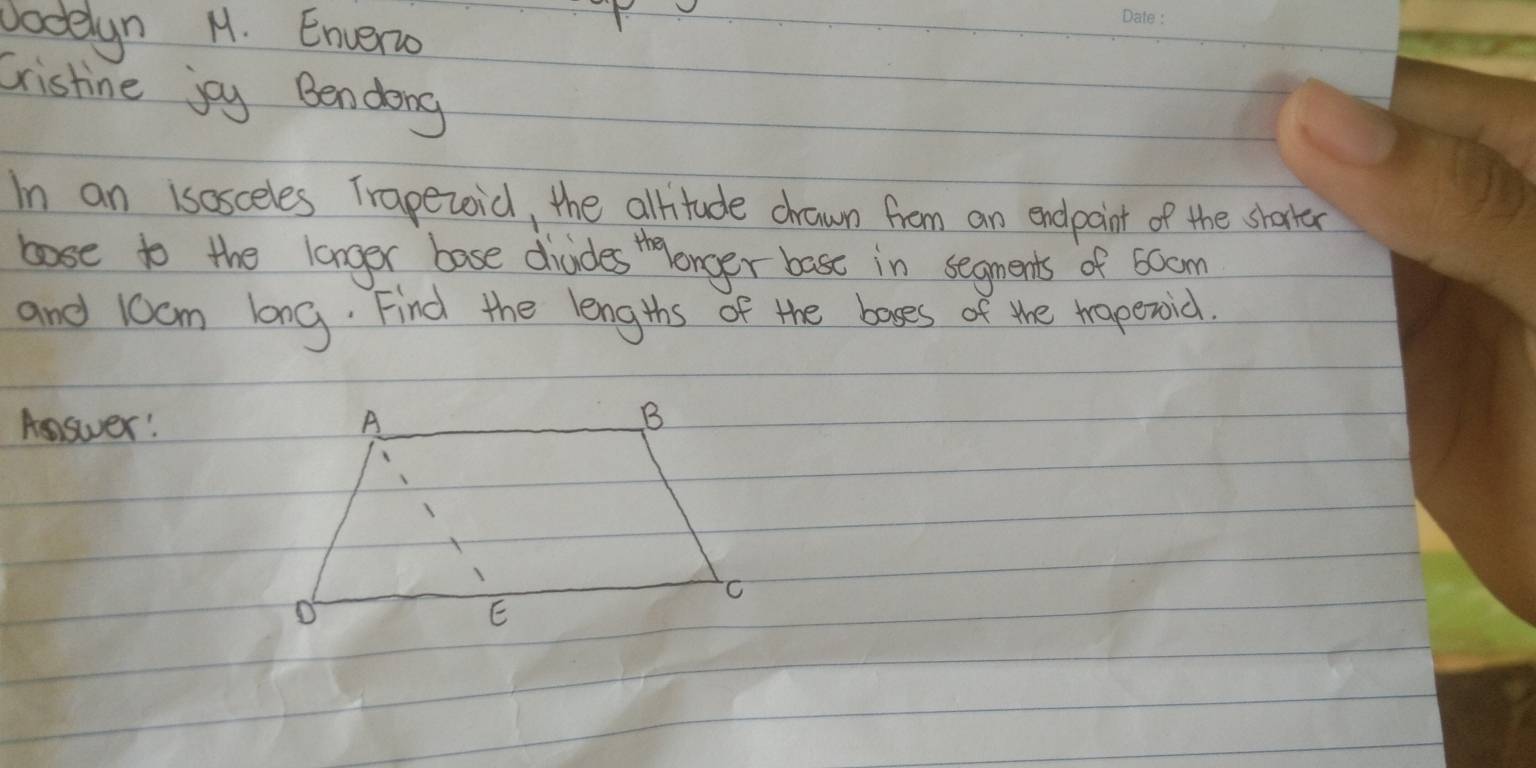 Date :
Jocelyn M. Enverzo
Cristine joy Bendong
In an isosceles Trapezoid, the altitude drawn from an endpoint of the shorter
base to the longer base divides the longer base in segments of 50cm
and 10cm long. Find the lengths of the bases of the trapezoid.
Answer:
A B
D E C